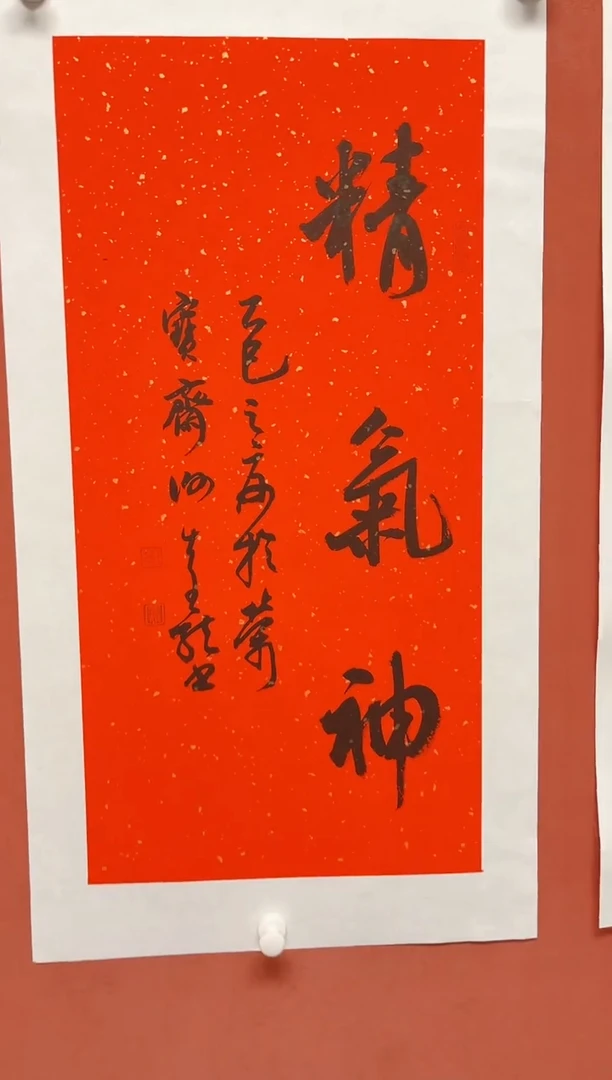 精氣神
乙巳之夏於榮
寶齋